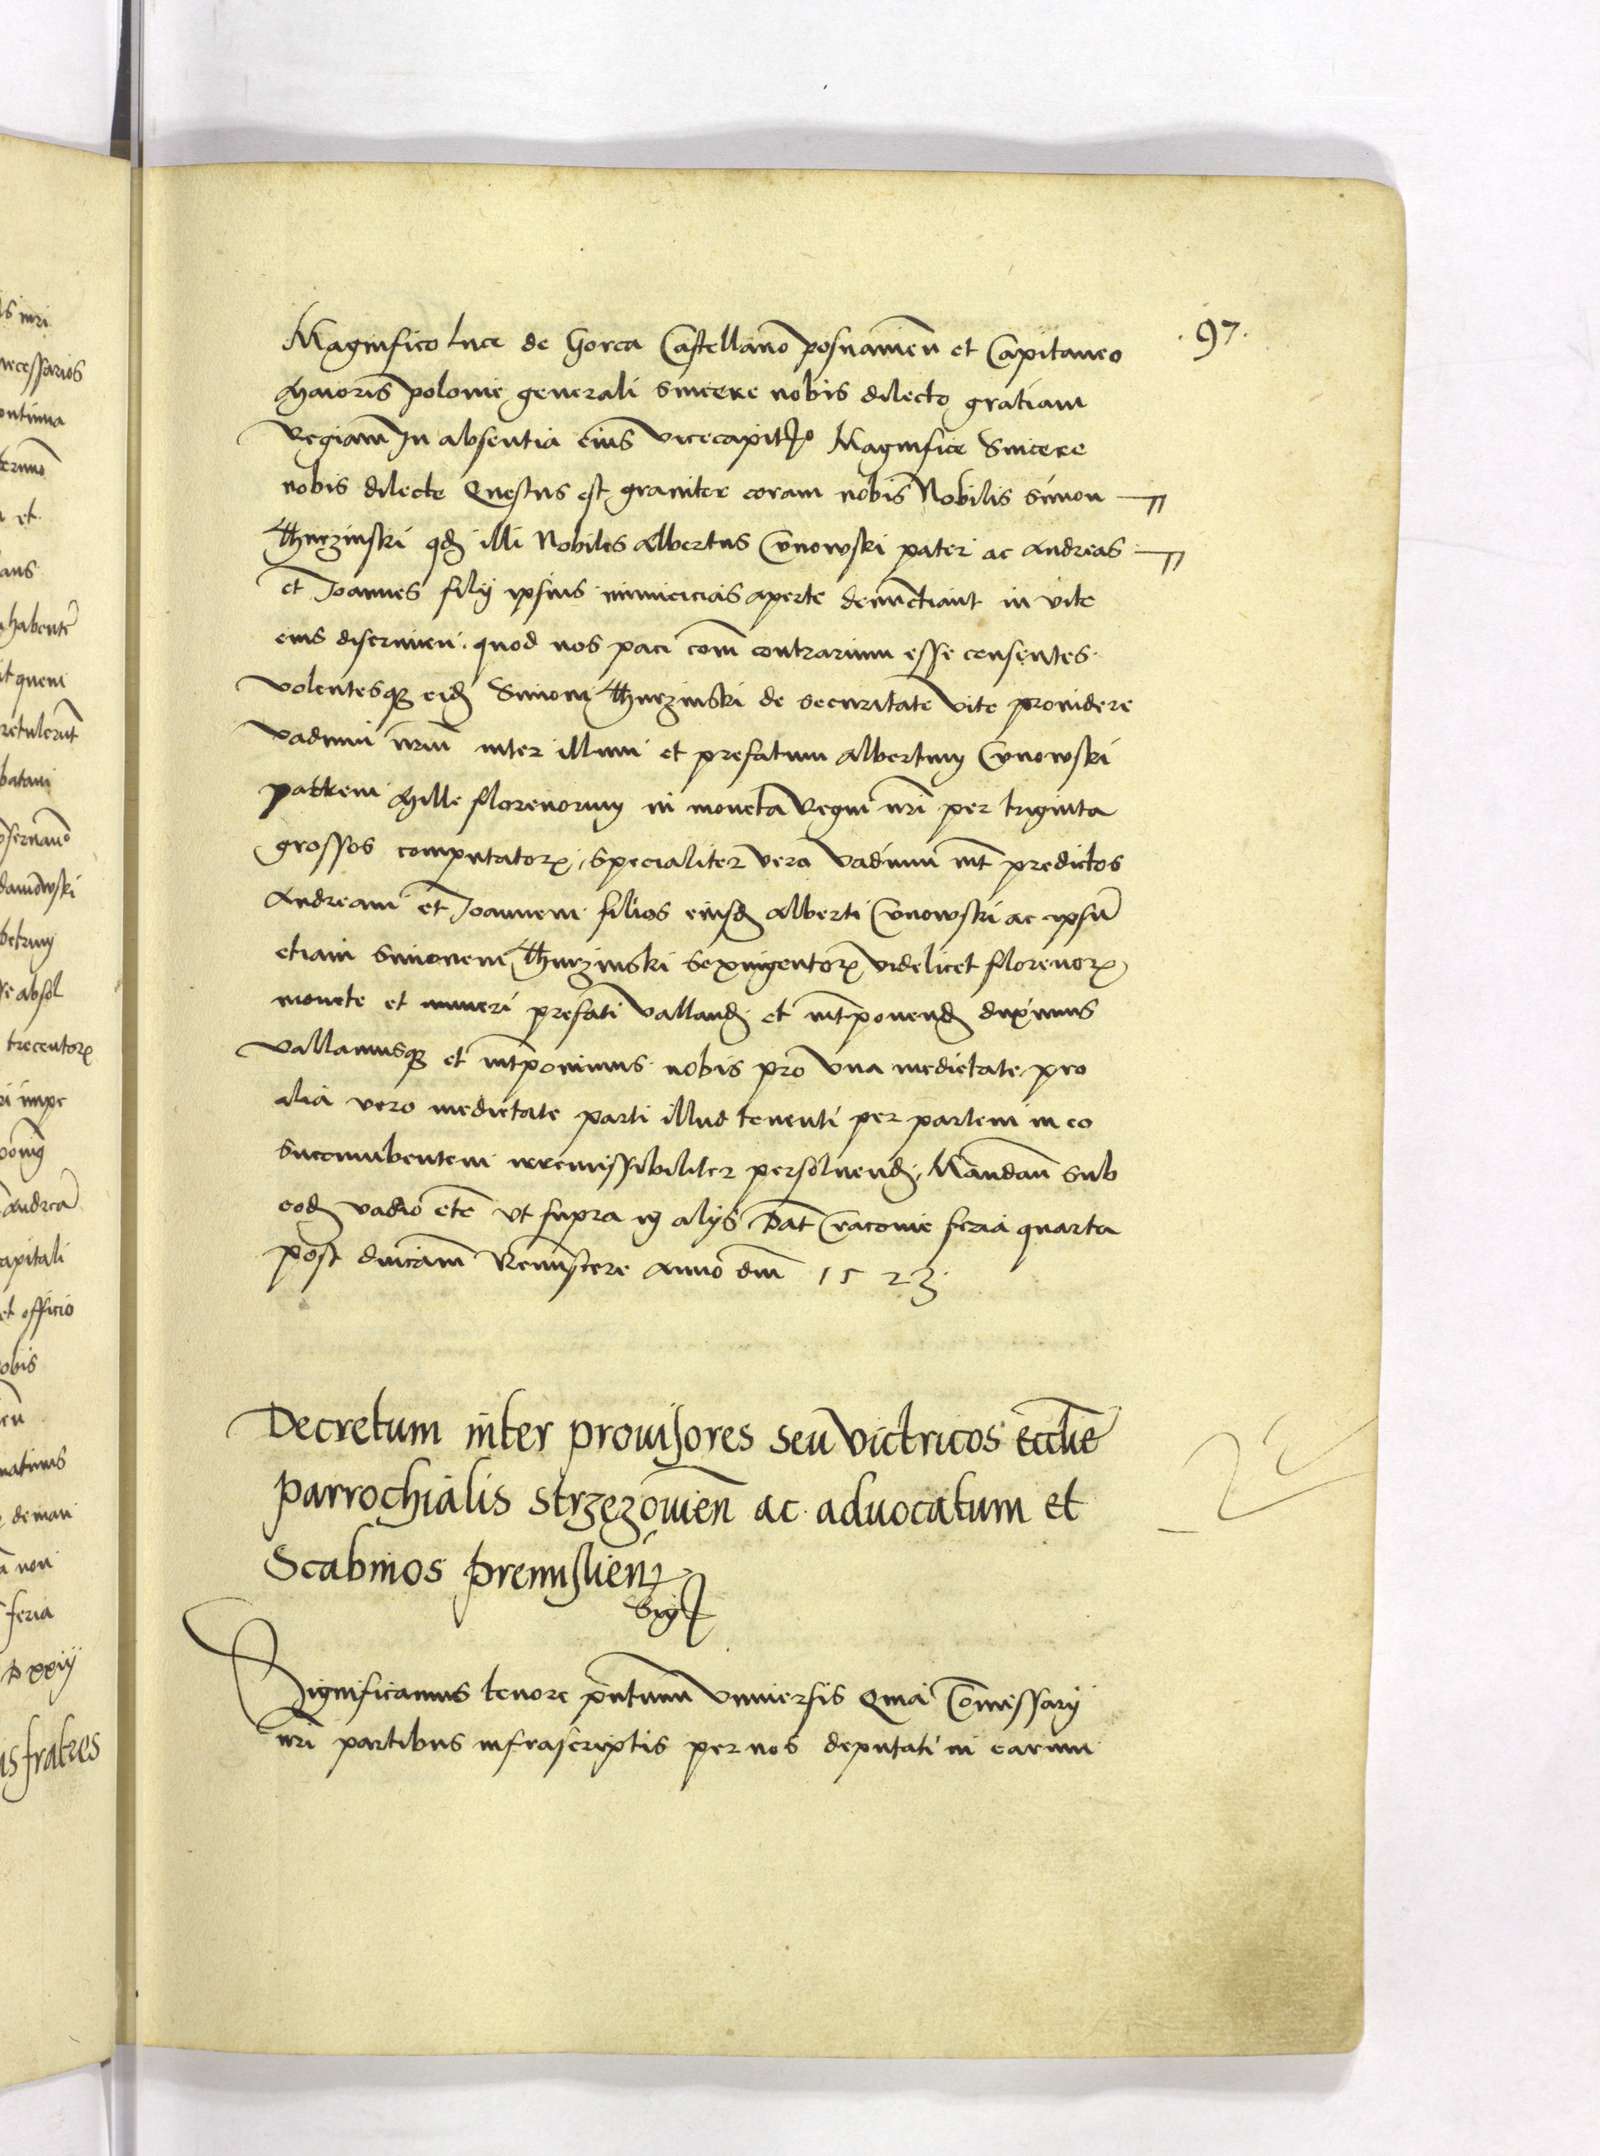 .97.
Magnifico Luce de Gorca Castellano posnanien et Capitaneo
Maioris polonie generali sincere nobis dilecto gratiam
Regiam In absentia eius vicecapitō Magnifice Sincere
nobis dilecte Questus est graviter coram nobis Nobilis simon
qd illi Nobiles Albertus pater ac Andreas
et Joannes filij ipsius inimicicias aperte denunctiant in vite
eius discrimen . quod nos paci com contrarium esse censentes.
volentesq eid Simoni de securitate vite providere
vadium nrum inter illum et prefatum Albertum
patrem Mille florenorum in moneta Regni nri per triginta
grossos computatorꝝ, specialiter vero vadium int predictos
Andream et Joannem filios eiusd Alberti ac ipsū
etiam simonem sexingentorꝝ videlicet florenorꝝ
monete et numeri prefati valland et intponend duximus
vallamusq et intponimus nobis pro una medietate, pro
alia vero medietate parti illud tenenti per partem in eo
succumbentem irremissibiliter persolvend, Mandam sub
eod vadio etc ut supra in alijs Dat Cracovie feria quarta
post dnicam Reminiscere Anno dni 1523.
Decretum inter provisores seu victricos ecclie
parrochialis strzezovien ac advocatum et
Scabinos premislien
Sig
Significamus tenore pntium universis Quia Comissarij
nri partibus infrascriptis per nos deputati in earum